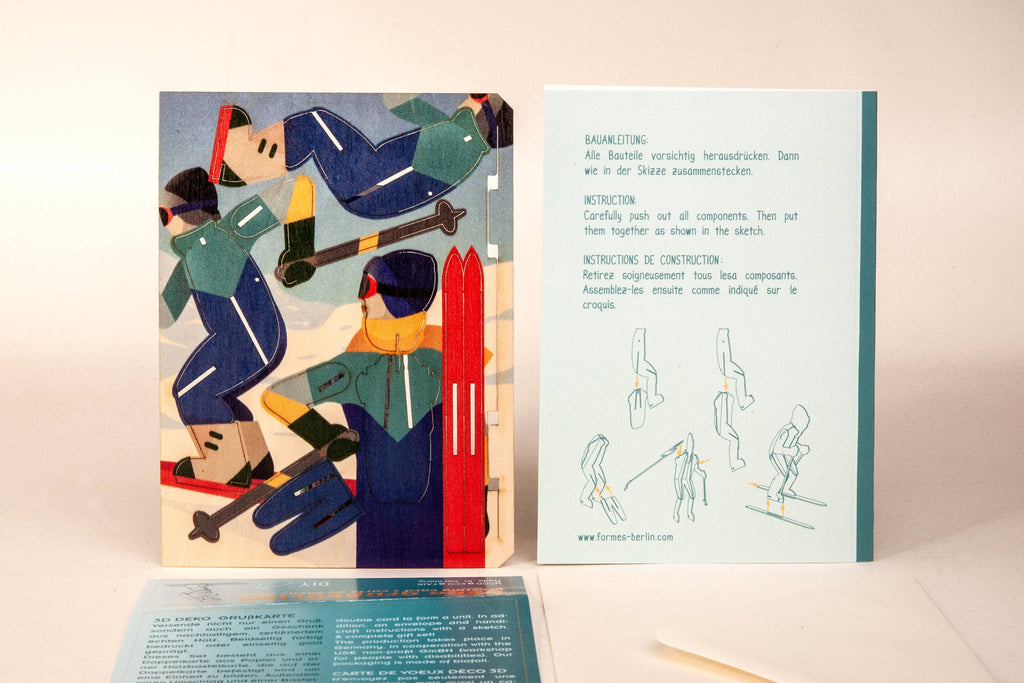 BAUANLEITUNG:
Alle Bauteile vorsichtig herausdrücken. Dann
wie in der Skizze zusammenstecken.
INSTRUCTION:
Carefully push out all components. Then put
them together as shown in the sketch.
INSTRUCTIONS DE CONSTRUCTION:
Retirez soigneusement tous lesa composants.
Assemblez-les ensuite comme indiqué sur le
croquis.
www.formes-berlin.com
DIY
3D DEKO GRUßKARTE
Versende nicht nur einen Gruß,
sondern ein Geschenk
aus nachhaltigem, zertifiziertem
echten Holz. Beidseitig farbig
bedruckt oder einseitig gold
geprägt.
Dieses Set besteht aus einer
Doppelkarte aus Papier und ei-
ner Holzbastelkarte, die auf der
Doppelkarte befestigt wird um
eine Einheit zu bilden. Außerdem
double card to form a unit. In ad-
dition, an envelope and handi-
craft instructions with a sketch.
A complete gift set!
The production takes place in
Germany. In cooperation with the
USE non-profit GmbH (workshop
for people with disabilities). Our
packaging is made of biofoil.
CARTE DE VOEUX DÉCO 3D
N'envoyez pas seulement une